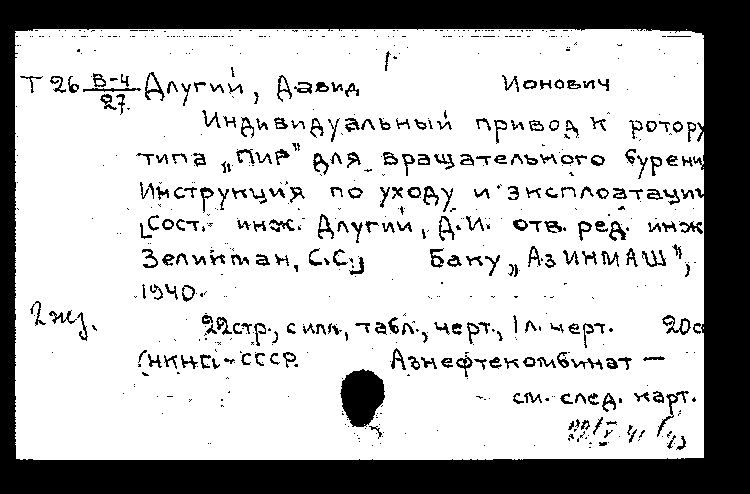 Т 26 В-4/27 Длугий, Давид Ионович
Индивидуальный привод к ротору
типа „ПИР" для вращательного бурени
Инструкция по уходу и эксплоатации
[Сост. инж. Длугий, Д.И. отв. ред. инж
Зеликман, С.С.] Баку „АзИНМАШ",
1940.
2 экз.
22 стр., с илл., табл., черт., 1 л. черт. 20с
(НКНП-СССР. Азнефтекомбинат —
см. след. карт.